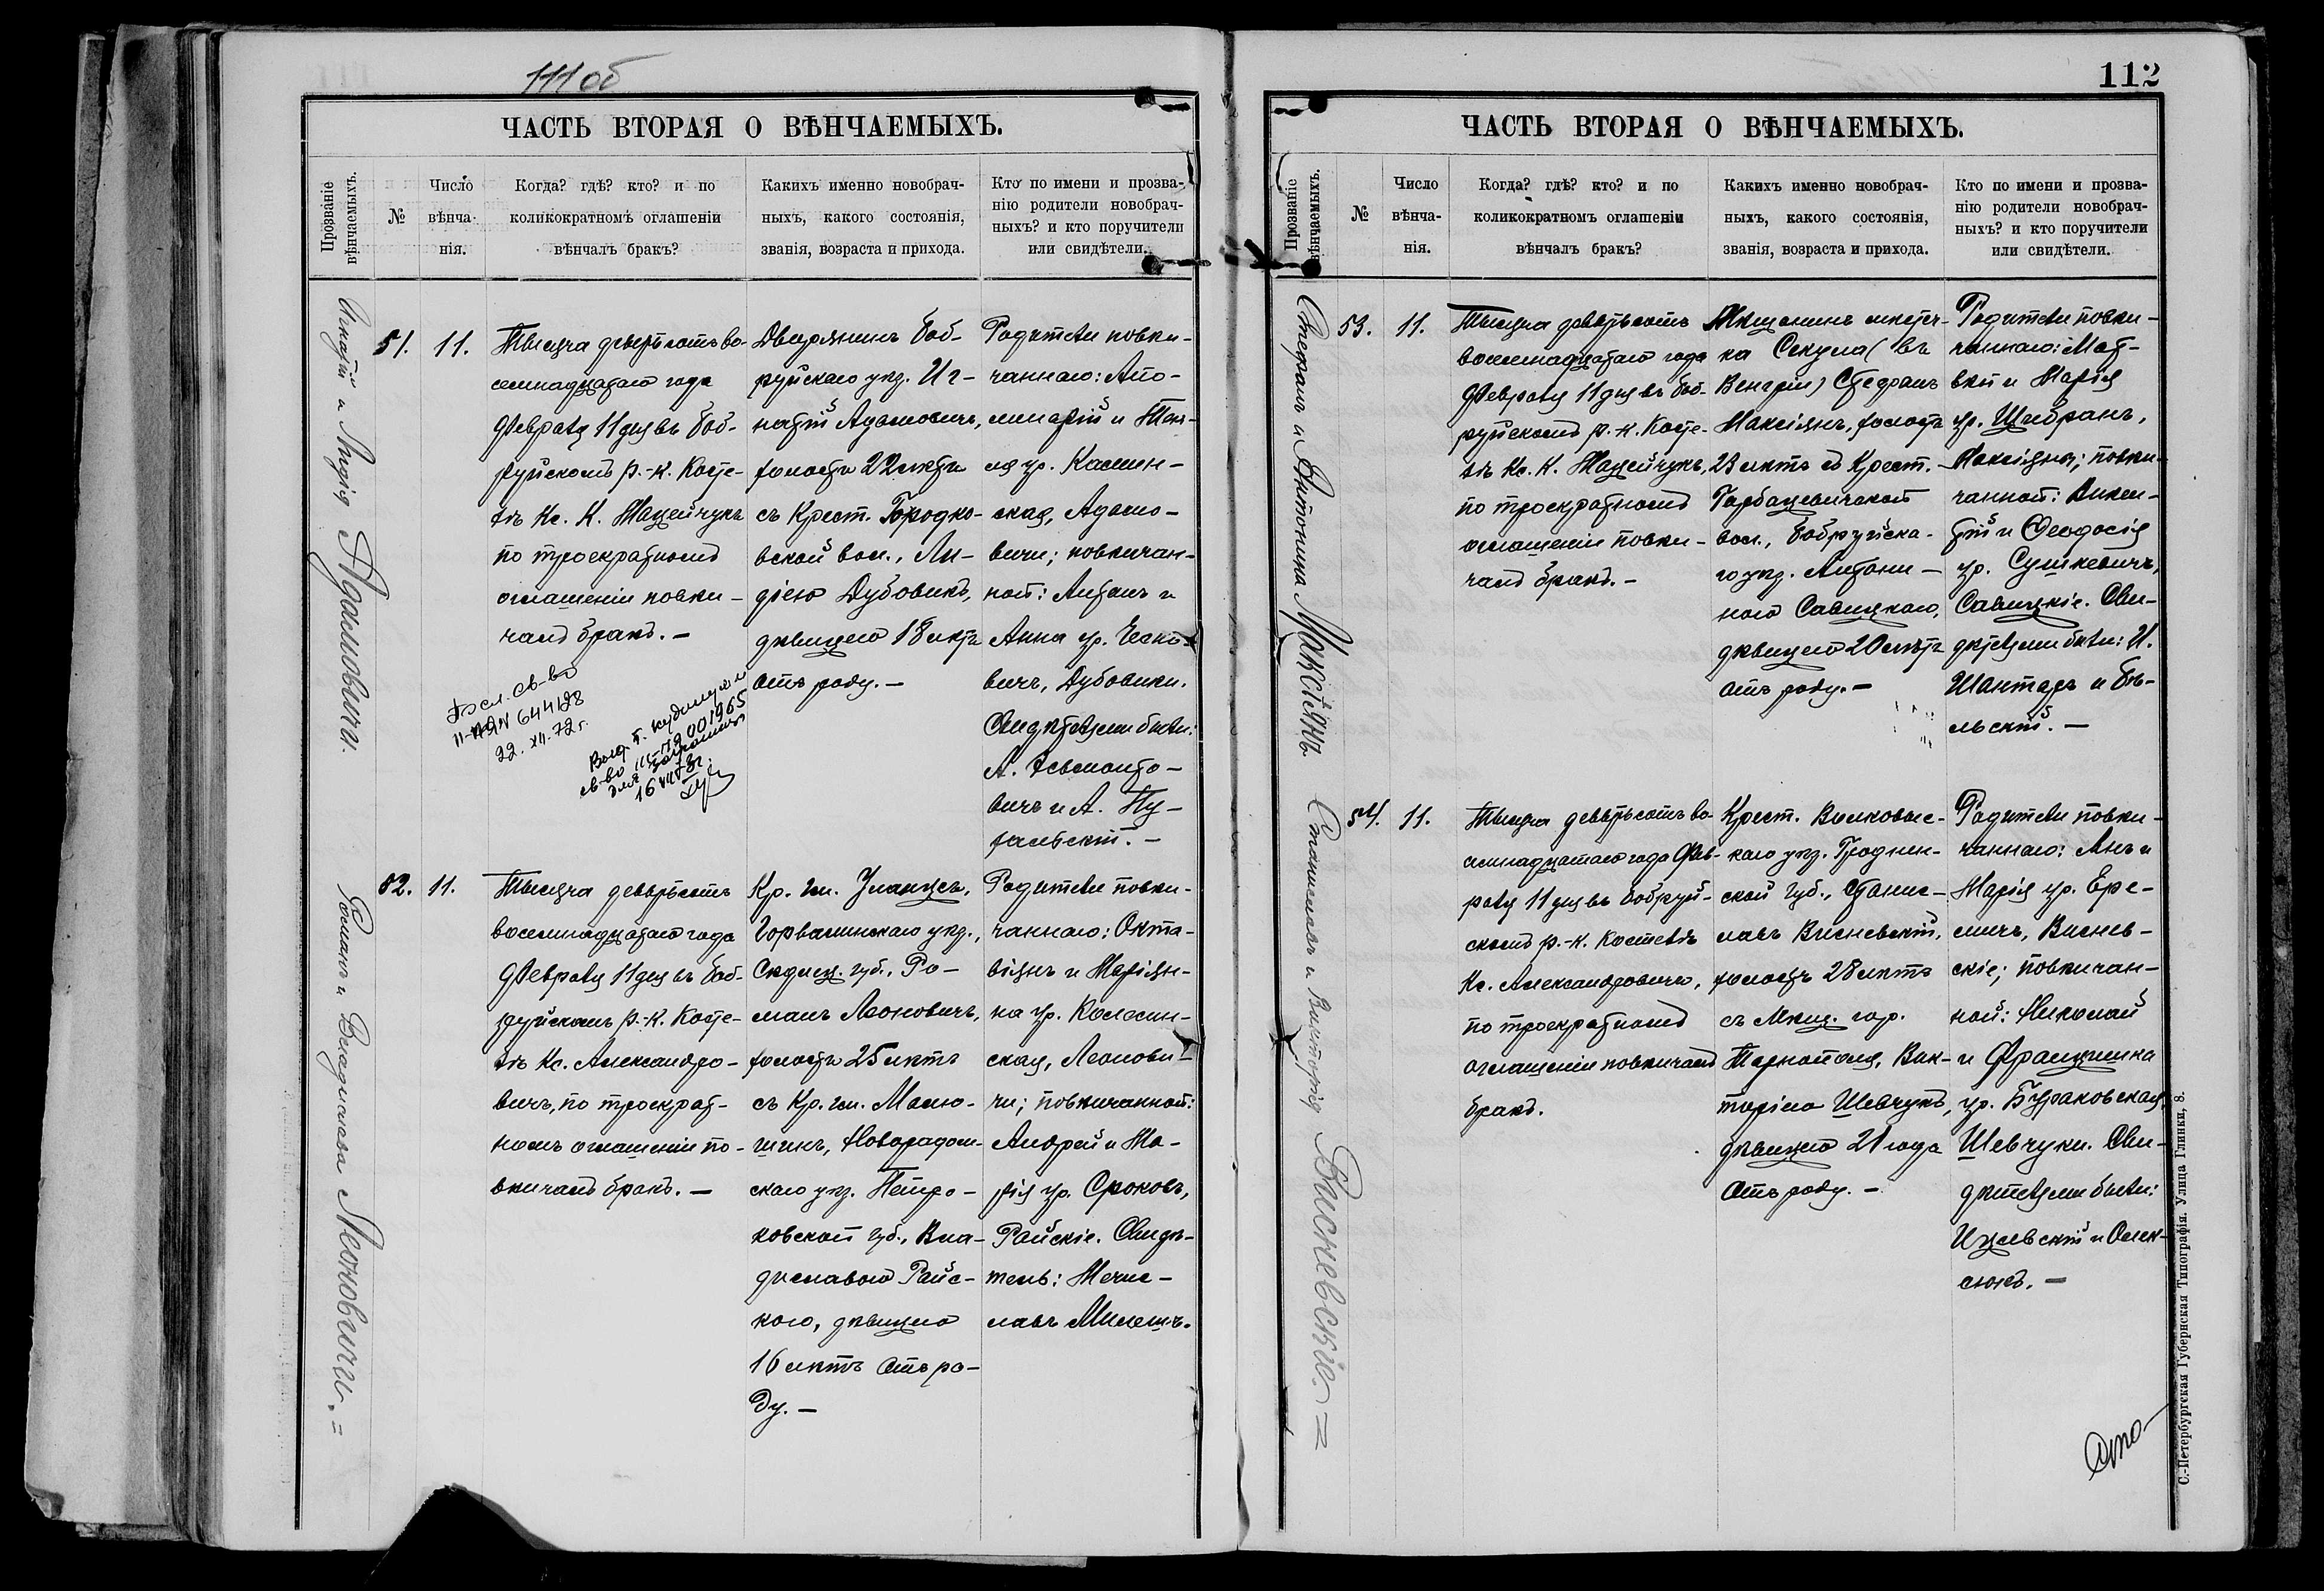 111 об
ЧАСТЬ ВТОРАЯ О ВѢНЧАЕМЫХЪ.
Прозваніе вѣнчаемыхъ.
№
Число
вѣнча-
нія.
Когда? гдѣ? кто? и по
коликократномъ оглашеніи
вѣнчалъ бракъ?
Какихъ именно новобрач-
ныхъ, какого состоянія,
званія, возраста и прихода.
Кто по имени и прозва-
нію родители новобрач-
ныхъ? и кто поручители
или свидѣтели.
Игнатій и Лидія Адамовичи.
51.
11.
Тысяча девятьсотъ во-
семнадцатаго года
Февраля 11 дня въ Боб-
руйскомъ р.-к. Косте-
лѣ Кс. К. Мацейчукъ
по троекратномъ
оглашеніи повѣн-
чалъ бракъ. —
Посл. св-во
22. XII. 72 г.
Дворянинъ Боб-
руйскаго уѣз. Иг-
натій Адамовичъ,
холостъ 22 лѣтъ
съ Крест. Городко-
вской вол., Ли-
діею Дубовикъ,
дѣвицею 18 лѣтъ
отъ роду. —
Родители повѣн-
чаннаго: Апо-
линарій и Тек-
ля ур. Касин-
ская, Адамо-
вичи; повѣнчан-
ной: Антонъ и
Анна ур. Ческо-
вичъ, Дубовики.
Свидѣтелями были:
Роман и Владислава Леоновичи. =
52.
11.
Тысяча девятьсотъ
восемнадцатаго года
Февраля 11 дня въ Боб-
руйскомъ р.-к. Косте-
лѣ Кс. Александро-
вичъ, по троекрат-
номъ оглашеніи по-
вѣнчалъ бракъ. —
Кр. гм. Уланцъ,
Горвалинскаго уѣз.,
Сѣдлец. губ., Ро-
манъ Леоновичъ,
холостъ 25 лѣтъ
съ Кр. гм. Малю-
шинъ, Новорадом-
скаго уѣз. Петро-
ковской губ., Вла-
диславою Райс-
кою, дѣвицею
16 лѣтъ отъ ро-
ду. —
Родители повѣн-
чаннаго: Окта-
віянъ и Маріян-
на ур. Колосин-
ская, Леонови-
чи; повѣнчанной:
Андрей и Ма-
рія ур. Сроковъ,
Райскіе. Свидѣ-
тель: Мечис-
лавъ Милешъ.
112
ЧАСТЬ ВТОРАЯ О ВѢНЧАЕМЫХЪ.
Прозваніе вѣнчаемыхъ.
№
Число
вѣнча-
нія.
Когда? гдѣ? кто? и по
коликократномъ оглашеніи
вѣнчалъ бракъ?
Какихъ именно новобрач-
ныхъ, какого состоянія,
званія, возраста и прихода.
Кто по имени и прозва-
нію родители новобрач-
ныхъ? и кто поручители
или свидѣтели.
Стефанъ и Антонина Максіянъ
53.
11.
Тысяча девятьсотъ
восемнадцатаго года
Февраля 11 дня въ Боб-
руйскомъ р.-к. Косте-
лѣ Кс. К. Мацейчукъ,
по троекратномъ
оглашеніи повѣн-
чалъ бракъ. —
Мѣщанинъ мѣстеч-
ка Секула (въ
Венгріи) Стефанъ
Максіянъ, холостъ
23 лѣтъ съ Крест.
Горбацевичской
вол., Бобруйска-
го уѣз. Антони-
ною Савицкою,
дѣвицею 20 лѣтъ
отъ роду. —
Родители повѣн-
чаннаго: Мат-
вѣй и Марія
ур. Щибранъ,
Максіяны; повѣн-
чанной: Викен-
тій и Феодосія
ур. Сушкевичъ,
Савицкіе. Сви-
дѣтелями были: И.
Шантаръ и Бѣ-
льскій. —
Станиславъ и Викторія Висневскіе =
54.
11.
Тысяча девятьсотъ во-
семнадцатаго года Фев-
раля 11 дня въ Бобруй-
скомъ р.-к. Костелѣ
Кс. Александровичъ,
по троекратномъ
оглашеніи повѣнчалъ
бракъ.
Крест. Волковыс-
каго уѣз. Гроднен-
ской губ., Станис-
лавъ Висневскій,
холостъ 28 лѣтъ
съ Мѣщ. гор.
Тарнополя, Вик-
торіею Шевчукъ,
дѣвицею 21 года
отъ роду. —
Родители повѣн-
чаннаго: Янъ и
Марія ур. Ере-
мичъ, Виснев-
скіе; повѣнчан-
ной: Николай
и Францишка
ур. Бураковская,
Шевчуки. Сви-
дѣтелями были:
и Олек-
сюкъ. —
С.-Петербургская Губернская Типографія. Улица Глинки, 8.